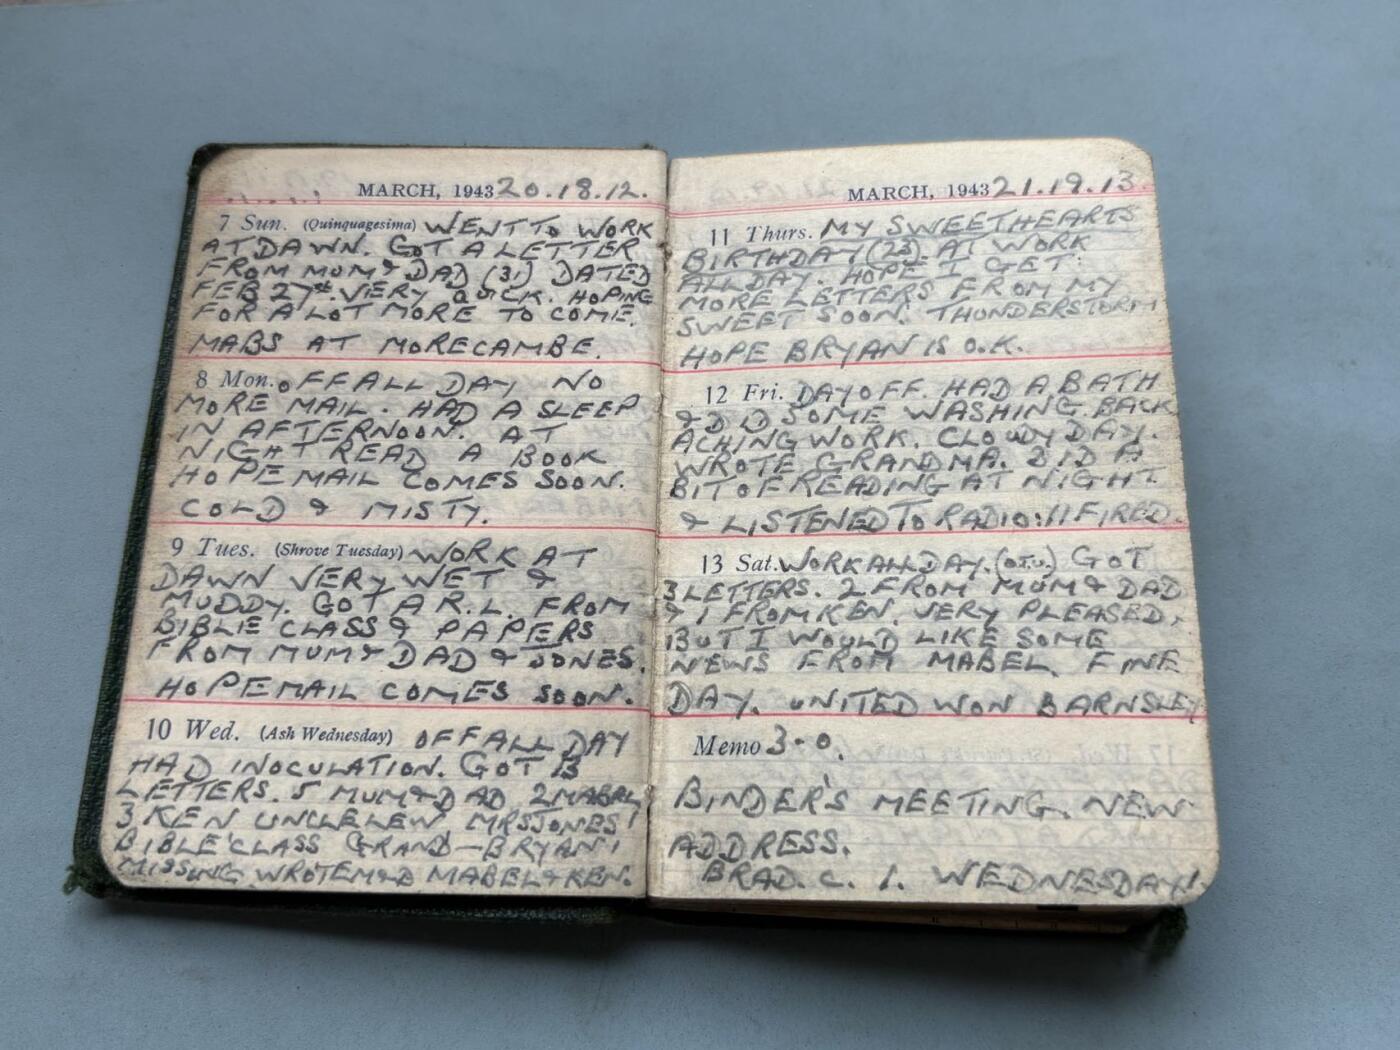 MARCH, 1943 20.18.12.
7 Sun. (Quinquagesima) WENT TO WORK
AT DAWN. GOT A LETTER
FROM MUM & DAD (31) DATED
FEB 27th. VERY QUICK. HOPING
FOR A LOT MORE TO COME.
MABS AT MORECAMBE.
8 Mon. OFF ALL DAY NO
MORE MAIL. HAD A SLEEP
IN AFTERNOON. AT
NIGHT READ A BOOK
HOPE MAIL COMES SOON.
COLD & MISTY.
9 Tues. (Shrove Tuesday) WORK AT
DAWN VERY WET &
MUDDY. GOT A R.L. FROM
BIBLE CLASS & PAPERS
FROM MUM & DAD & JONES.
HOPE MAIL COMES SOON.
10 Wed. (Ash Wednesday) OFF ALL DAY
HAD INOCULATION. GOT 13
LETTERS. 5 MUM & DAD 2 MABEL
3 KEN UNCLE LEW MRS JONES 1
BIBLE CLASS GRAND — BRYAN 1
MISSING WROTE M & D MABEL & KEN.
MARCH, 1943 21.19.13.
11 Thurs. MY SWEETHEARTS
BIRTHDAY (23). AT WORK
ALL DAY. HOPE I GET
MORE LETTERS FROM MY
SWEET SOON. THUNDERSTORM
HOPE BRYAN IS O.K.
12 Fri. DAY OFF. HAD A BATH
& DID SOME WASHING BACK
ACHING WORK. CLOUDY DAY.
WROTE GRANDMA. DID A
BIT OF READING AT NIGHT.
& LISTENED TO RADIO: 11 FIRED.
13 Sat. WORK ALL DAY. (O.T.U.) GOT
3 LETTERS. 2 FROM MUM & DAD
& 1 FROM KEN. VERY PLEASED,
BUT I WOULD LIKE SOME
NEWS FROM MABEL. FINE
DAY. UNITED WON BARNSLEY
Memo 3-0.
BINDER'S MEETING. NEW
ADDRESS.
BRAD. C. 1. WEDNESDAY!